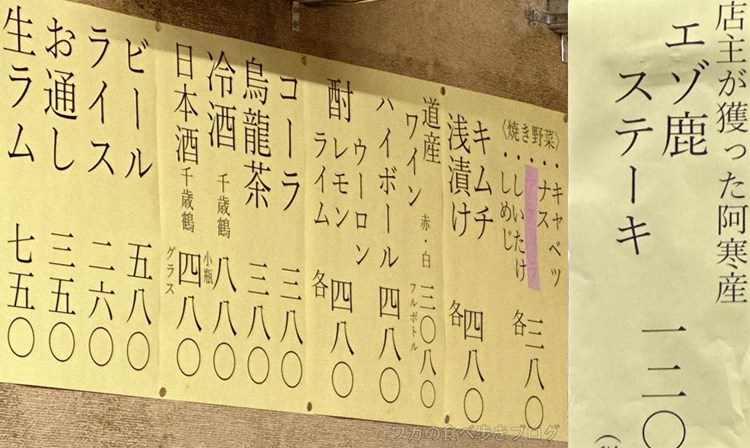 店主が獲った阿寒産
エゾ鹿
ステーキ 一二〇
〈焼き野菜〉
・キャベツ
・ナス
・しいたけ
・しめじ
各三八〇
キムチ
浅漬け
各四八〇
道産
ワイン 赤・白 フルボトル 三〇八〇
ハイボール 四八〇
酎
ウーロン
レモン
ライム
各四八〇
コーラ 三八〇
烏龍茶 三八〇
冷酒 千歳鶴 小瓶 八八〇
日本酒 千歳鶴 グラス 四八〇
ビール 五八〇
ライス 二六〇
お通し 三五〇
生ラム 七五〇
ワカの食べ歩きブログ